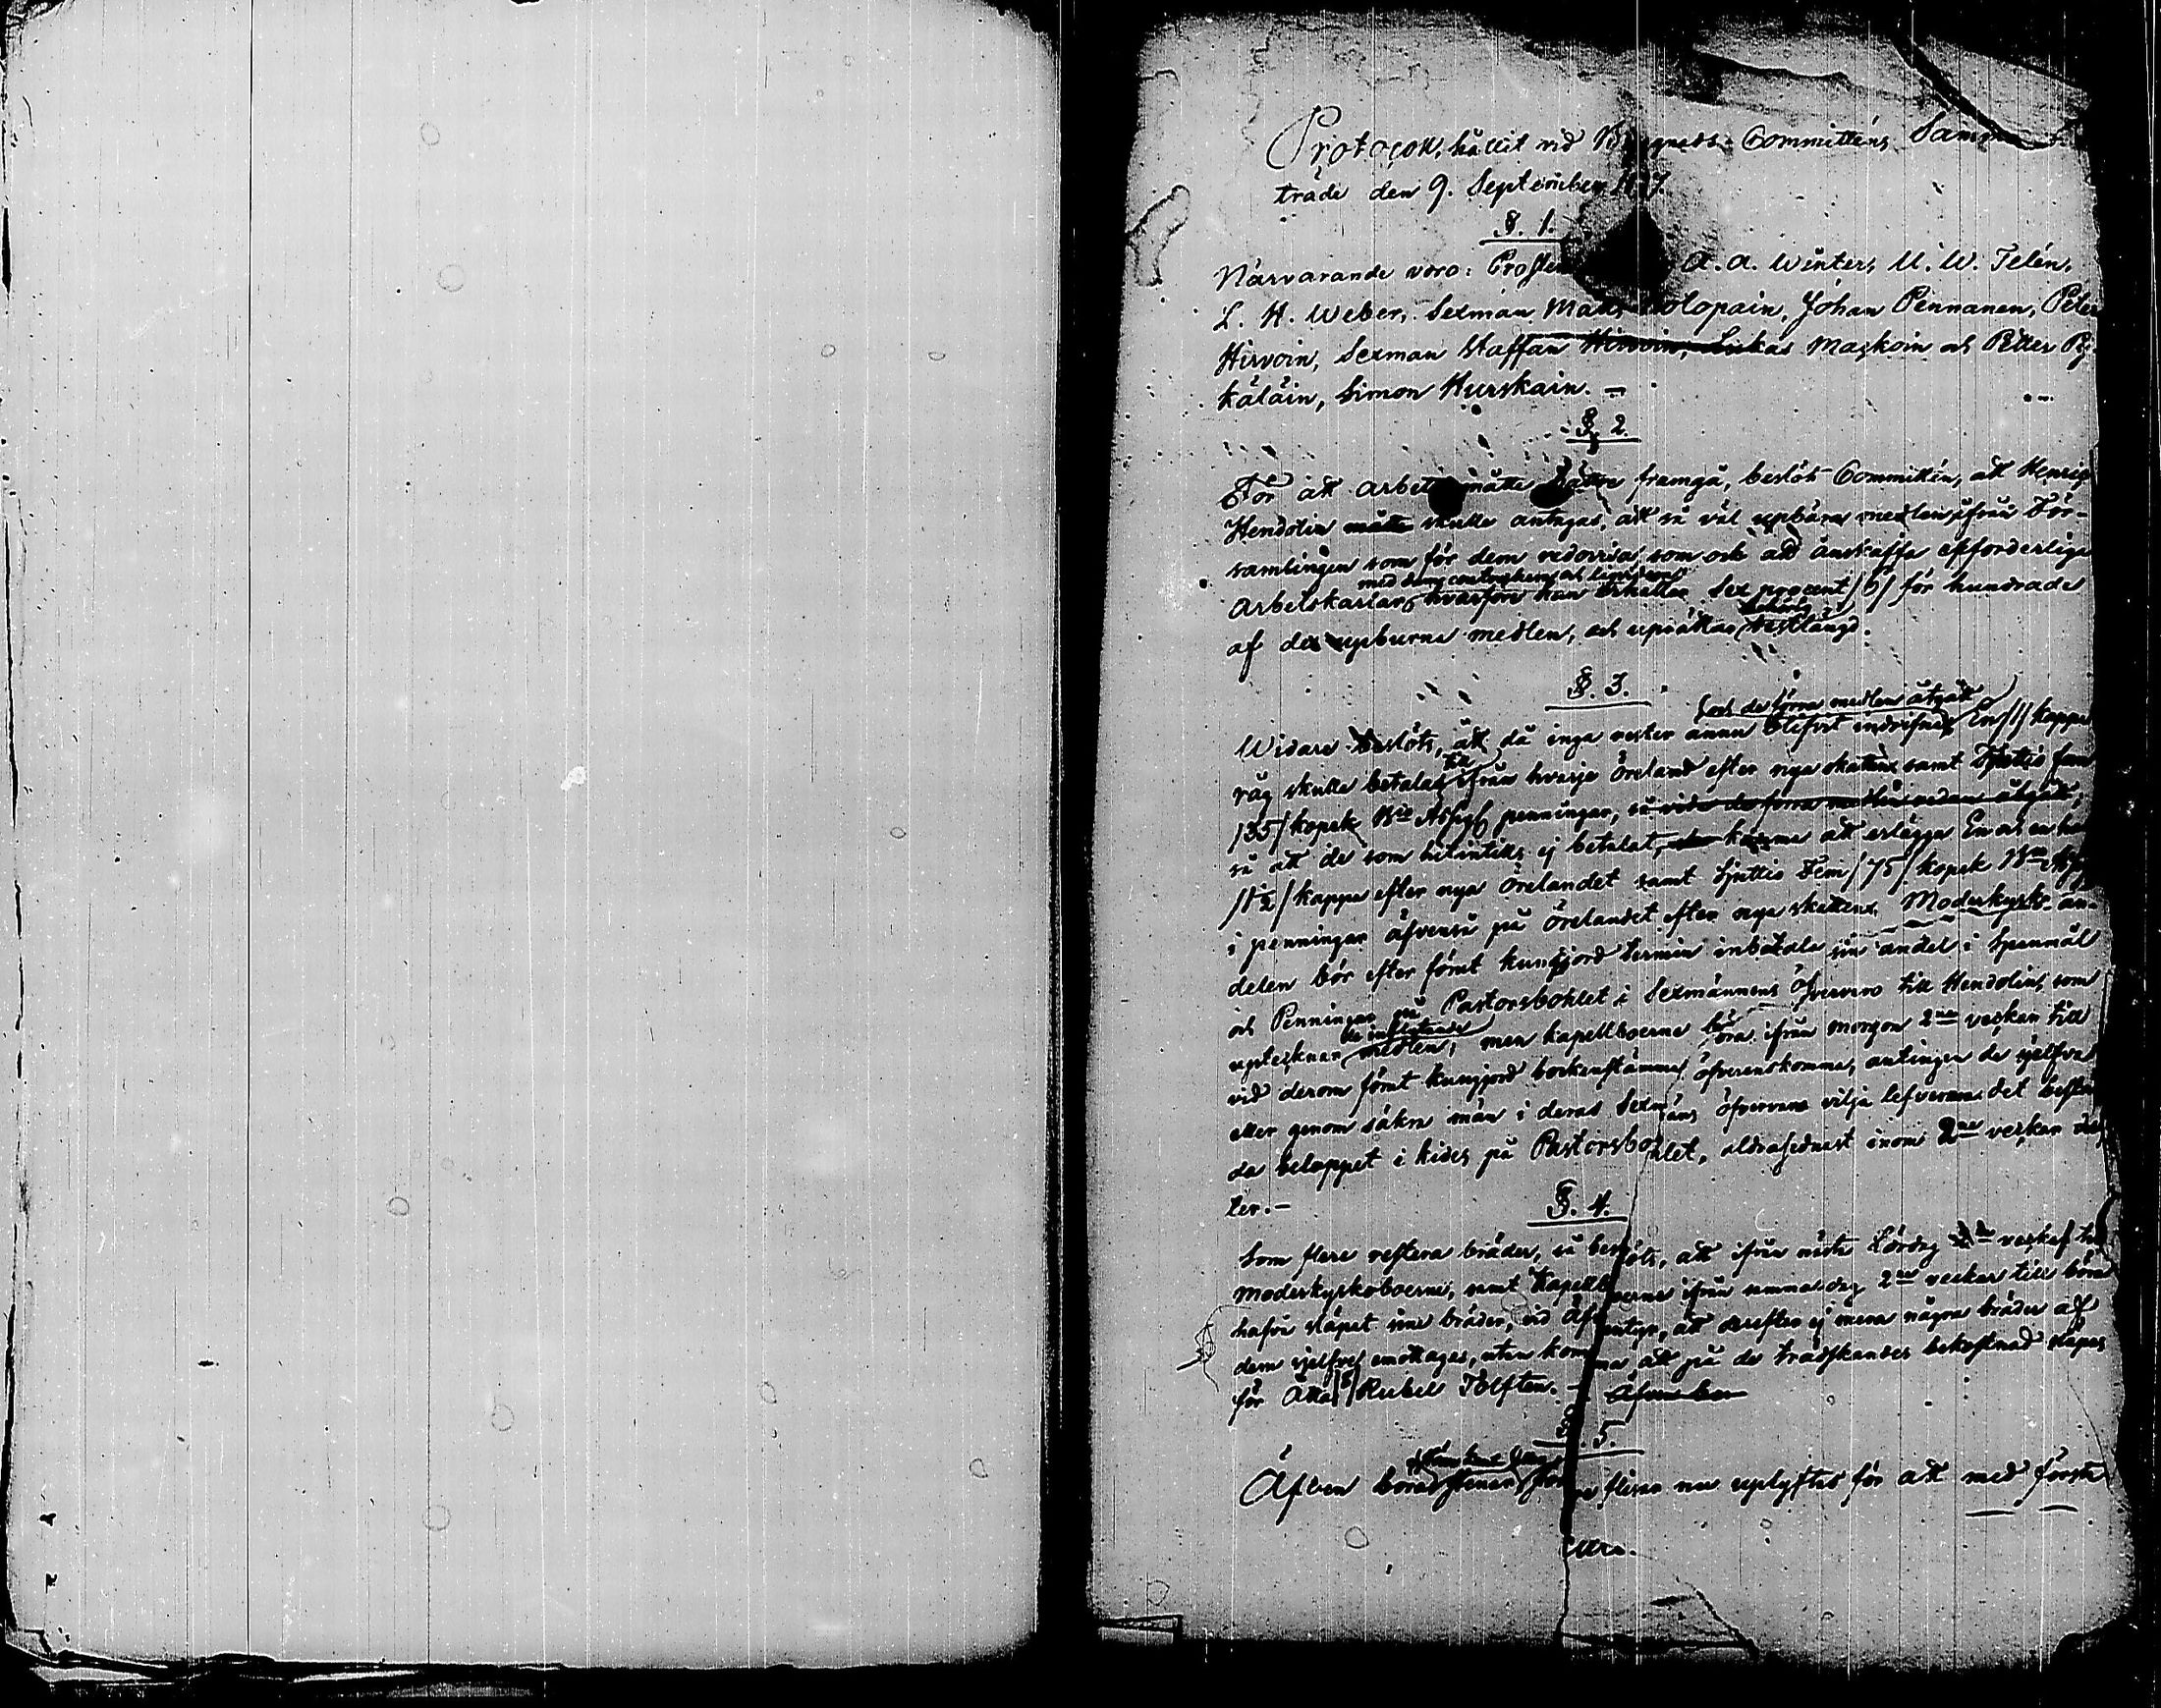 Protocoll, hållit vid Byggnads-Committéns Samman-
träde den 9. September
§. 1.
Närvarande voro: Prosten A. A. Winter, U. W. Telén,
L. H. Weber, Sexman Matts Holopain, Johan Pennanen, Peter
Hirvoin, Sexman Staffan Hirvoin, Lukas Maskoin och Petter Py-
käläin, Simon Kurskain. —
§. 2.
För att arbetet måtte bättre framgå, beslöt Committén, att Henric
Hendolin måtte skulle antagas, att så väl upbära medlen ifrån För-
samlingen som för dem redovisa, som och att anskaffa erforderlige
Arbetskarlar, hvarföre han erhåller Sex procent /6/ för hundrade
af de upburna medlen, och uprättas restlängd.
§. 3.
och de förra medlen åtgått
Widare beslöts, att då inga rester ännu blifvit indrifne, En /1/ kappe
råg skulle betalas ifrån hvarje öreland efter nya skatten samt Trettio fem
/35/ kopek B:co Assign penningar, så vida de förra medlen redan åtgått,
så att de som helintills ej betalat, komma att erlägga En och en half
/1½/ kappe efter nya örelandet samt Sjuttio Fem /75/ kopek B:co
i penningar äfvenså på örelandet efter nya skatten. Moderkyrks-an-
delen bör efter förut kungjord termin inbetala sin andel i Spenmål
och Penningar på Pastorsbohlet i Sexmännens öfvervaro till Hendolin, som
uptecknar de inflytande medlen; men kapellboerne böra ifrån morgon 2ne veckor till
vid derom förut kungjord sockenstämma öfverenskomma, antingen de sjelfva
eller genom säkra män i deras Sexmäns öfvervaro vilja lefverera det bestäm-
da beloppet i Kides på Pastorsbohlet, aldrasednast inom 2ne veckor der-
ter. —
§. 4.
Som flere restera bräder, så beslöts, att ifrån nästa Lördag veckor till
Moderkyrkoboerne, samt Kapellboerne ifrån samma dag 2ne veckor till böra
hafva släpat sina bräder, vid äfventyr, att derefter ej mera några bräder af
dem sjelfve emottages, utan komma att på de tredskandes bekostnad släpas
för Åtta /8/ Rubel Tolften. — Äfven bör
§. 5.
Äfven böra stenar flere nu uplyftas för att med första